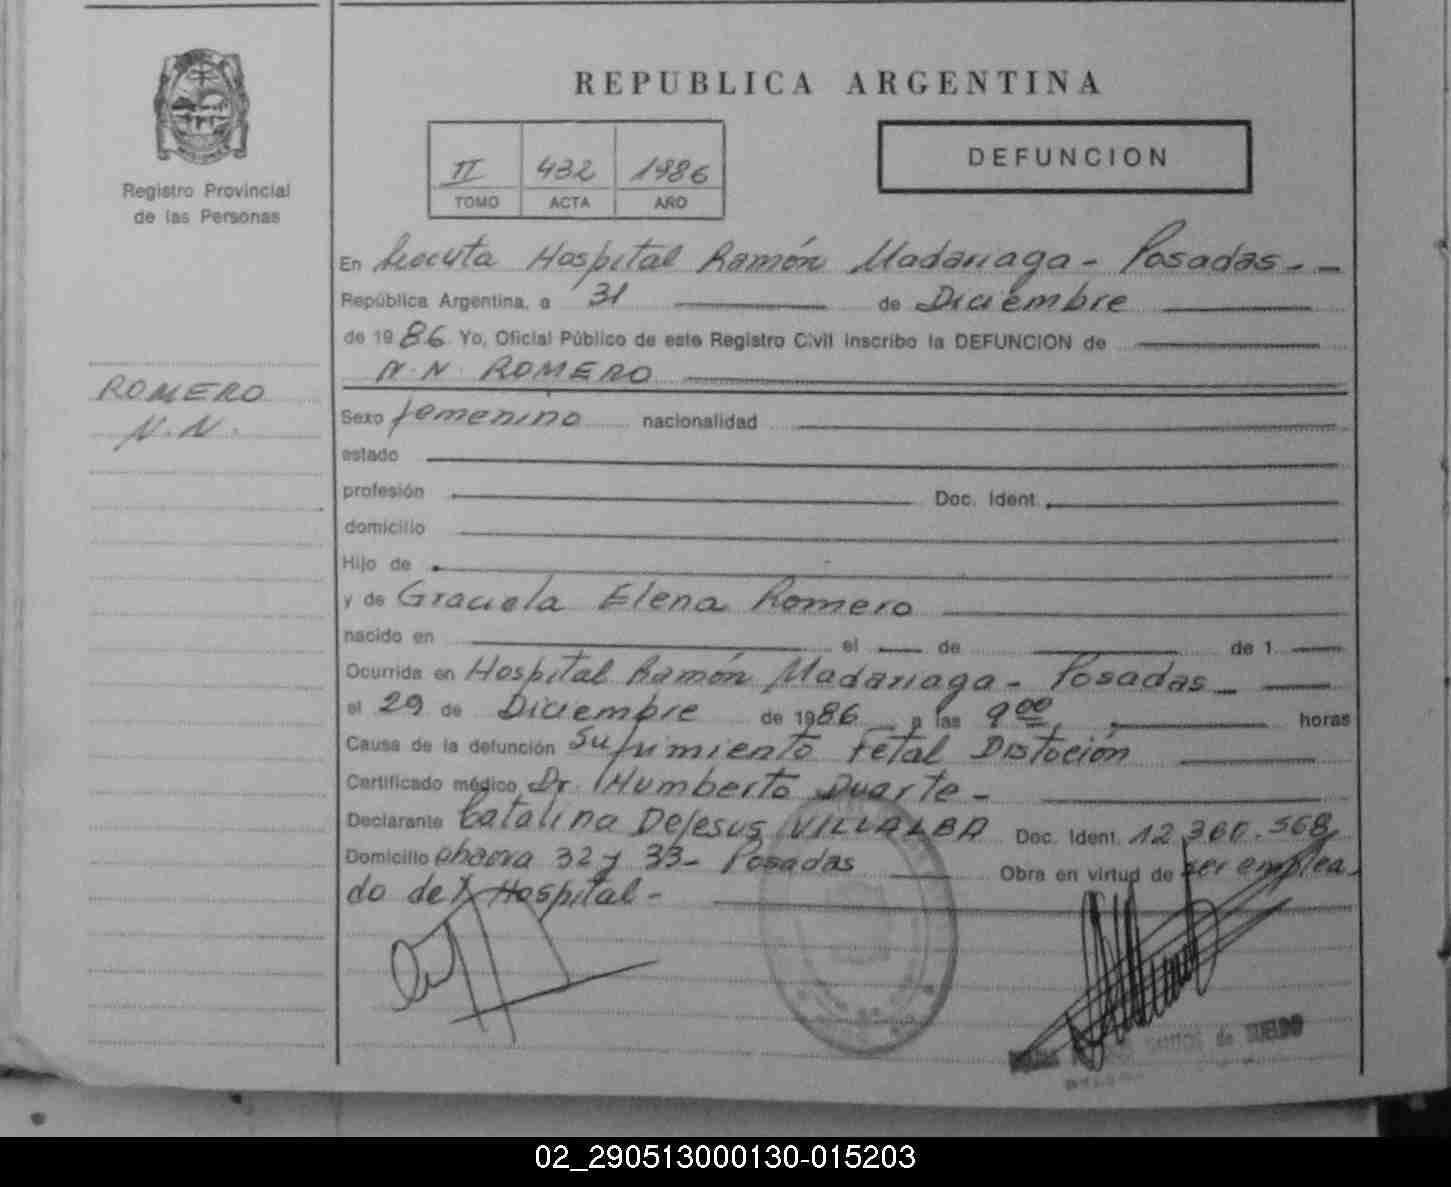 REPUBLICA ARGENTINA
DEFUNCION
II 432 1986
TOMO ACTA AÑO
Registro Provincial
de las Personas
En Hospital Ramón Madariaga - Posadas - -
República Argentina, a 31 de Diciembre
de 1986 Yo, Oficial Público de este Registro Civil inscribo la DEFUNCION de
N. N. ROMERO
ROMERO
N. N.
Sexo femenino nacionalidad
estado
profesión Doc. Ident.
domicilio
Hijo de
y de Graciela Elena Romero
nacido en el de de 1
Ocurrida en Hospital Ramón Madariaga - Posadas -
el 29 de Diciembre de 1986 a las 9 00 horas
Causa de la defunción Sufrimiento Fetal Distoción
Certificado médico Dr. Humberto Duarte -
Declarante Catalina DeJesus VILLALBA Doc. Ident. 12.360.568
Domicilio chacra 32 y 33 - Posadas Obra en virtud de ser emplea
do del Hospital -
de SUELDO
02_290513000130-015203